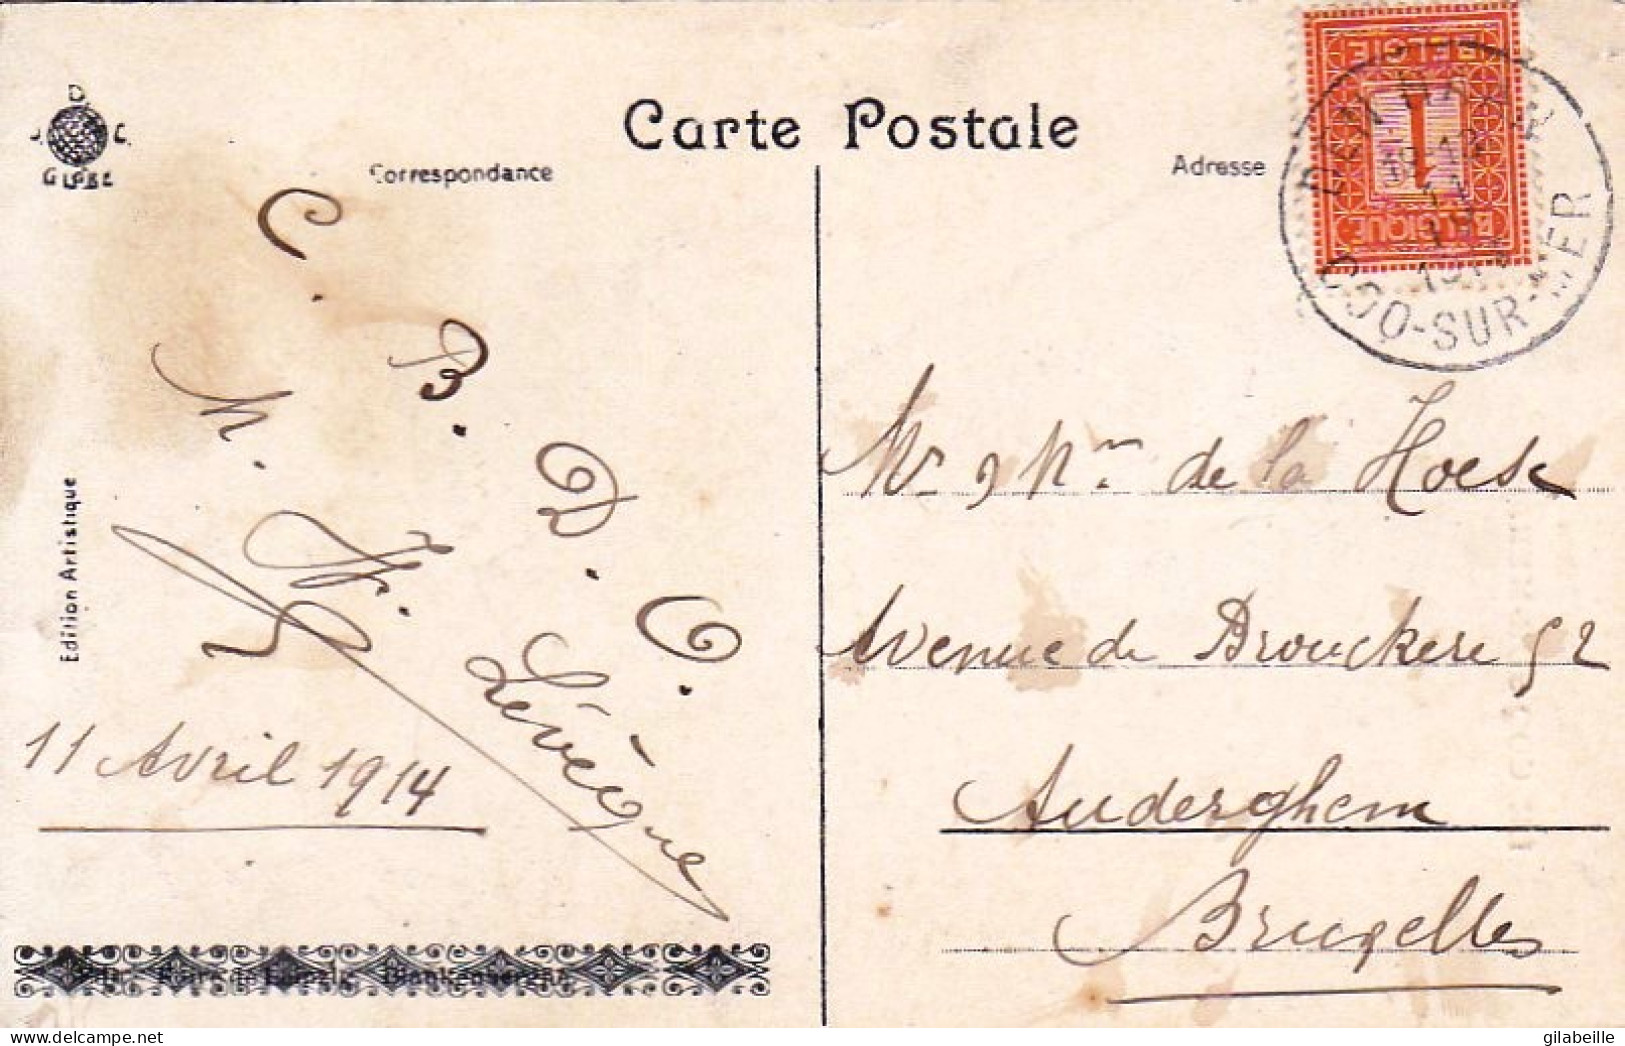 Carte Postale
D.
J. C.
GLOBE
Correspondance
Adresse
BELGIE
1
BELGIQUE
DEN HAAN
COQ-SUR-MER
C. B. D. O.
M. H. Lévêque
11 Avril 1914
Mr & Mme de la Hoese
Avenue de Brouckere 52
Auderghem
Bruxelles
Edition Artistique
Blankenberghe
delcampe.net
gilabeille